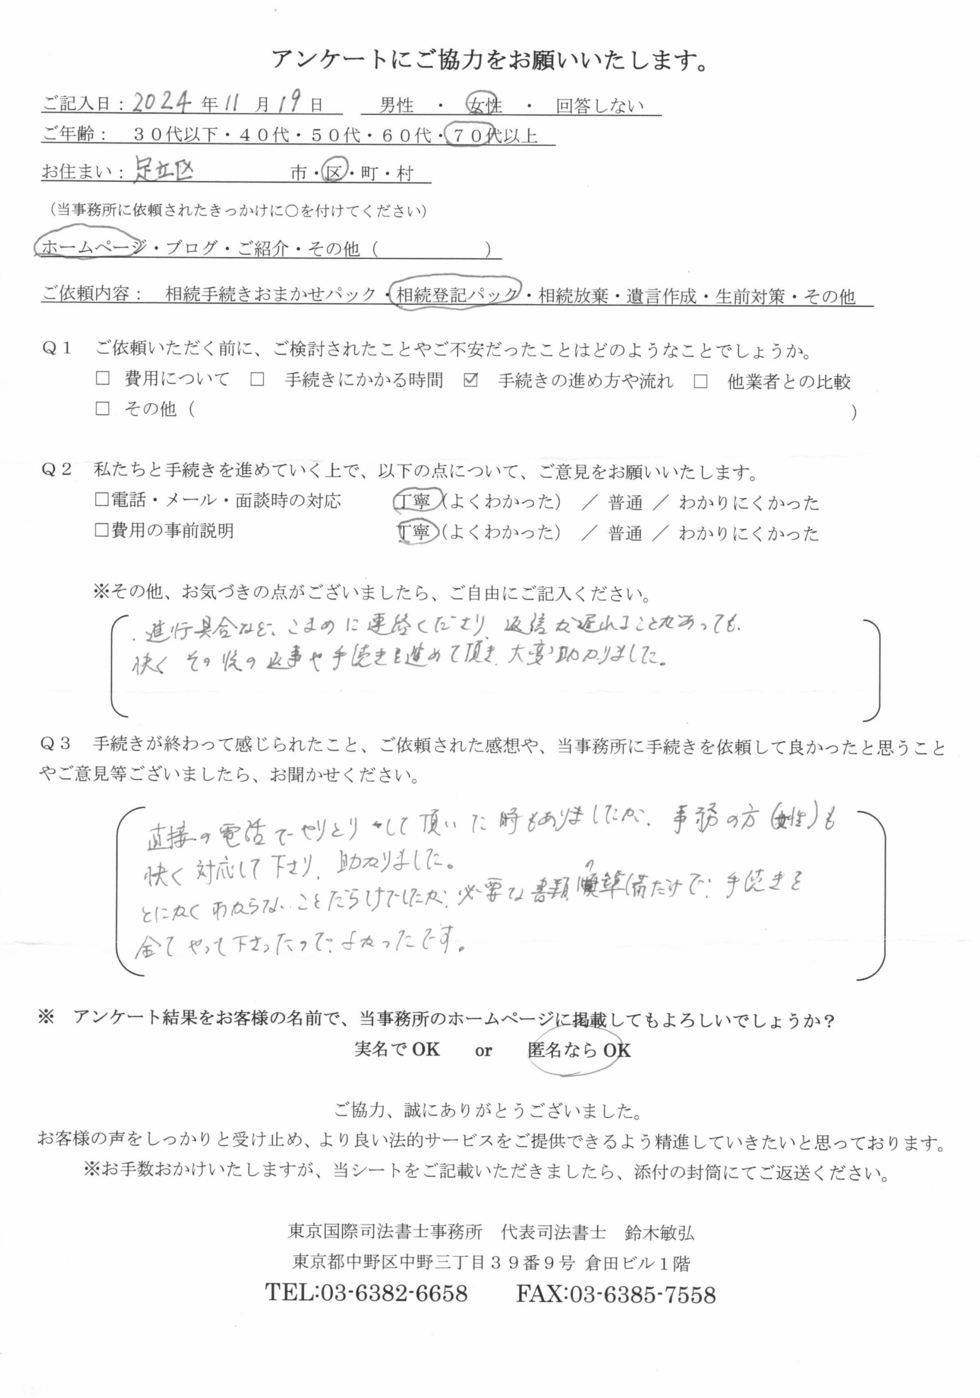 アンケートにご協力をお願いいたします。
ご記入日：2024年11月19日　男性　・　女性　・　回答しない
ご年齢：　３０代以下・４０代・５０代・６０代・７０代以上
お住まい：足立区　市・区・町・村
（当事務所に依頼されたきっかけに○を付けてください）
ホームページ・ブログ・ご紹介・その他（　　　　　　）
ご依頼内容：　相続手続きおまかせパック・相続登記パック・相続放棄・遺言作成・生前対策・その他
Ｑ１　ご依頼いただく前に、ご検討されたことやご不安だったことはどのようなことでしょうか。
□　費用について　□　手続きにかかる時間　☑　手続きの進め方や流れ　□　他業者との比較
□　その他（　　　　　　）
Ｑ２　私たちと手続きを進めていく上で、以下の点について、ご意見をお願いいたします。
□電話・メール・面談時の対応　丁寧（よくわかった）　／　普通　／　わかりにくかった
□費用の事前説明　丁寧（よくわかった）　／　普通　／　わかりにくかった
※その他、お気づきの点がございましたら、ご自由にご記入ください。
進行具合など、こまめに連絡くださり、返信が遅れることがあっても、
快く その後の返事や手続きを進めて頂き、大変助かりました。
Ｑ３　手続きが終わって感じられたこと、ご依頼された感想や、当事務所に手続きを依頼して良かったと思うこと
やご意見等ございましたら、お聞かせください。
直接の電話でやりとりして頂いた時もありましたが、事務の方（女性）も
快く対応して下さり、助かりました。
とにかくわからないことだらけでしたが、必要な書類の準備だけで、手続きを
全てやって下さったので、よかったです。
※　アンケート結果をお客様の名前で、当事務所のホームページに掲載してもよろしいでしょうか？
実名でOK　or　匿名ならOK
ご協力、誠にありがとうございました。
お客様の声をしっかりと受け止め、より良い法的サービスをご提供できるよう精進していきたいと思っております。
※お手数おかけいたしますが、当シートをご記載いただきましたら、添付の封筒にてご返送ください。
東京国際司法書士事務所　代表司法書士　鈴木敏弘
東京都中野区中野三丁目３９番９号 倉田ビル１階
TEL:03-6382-6658　FAX:03-6385-7558